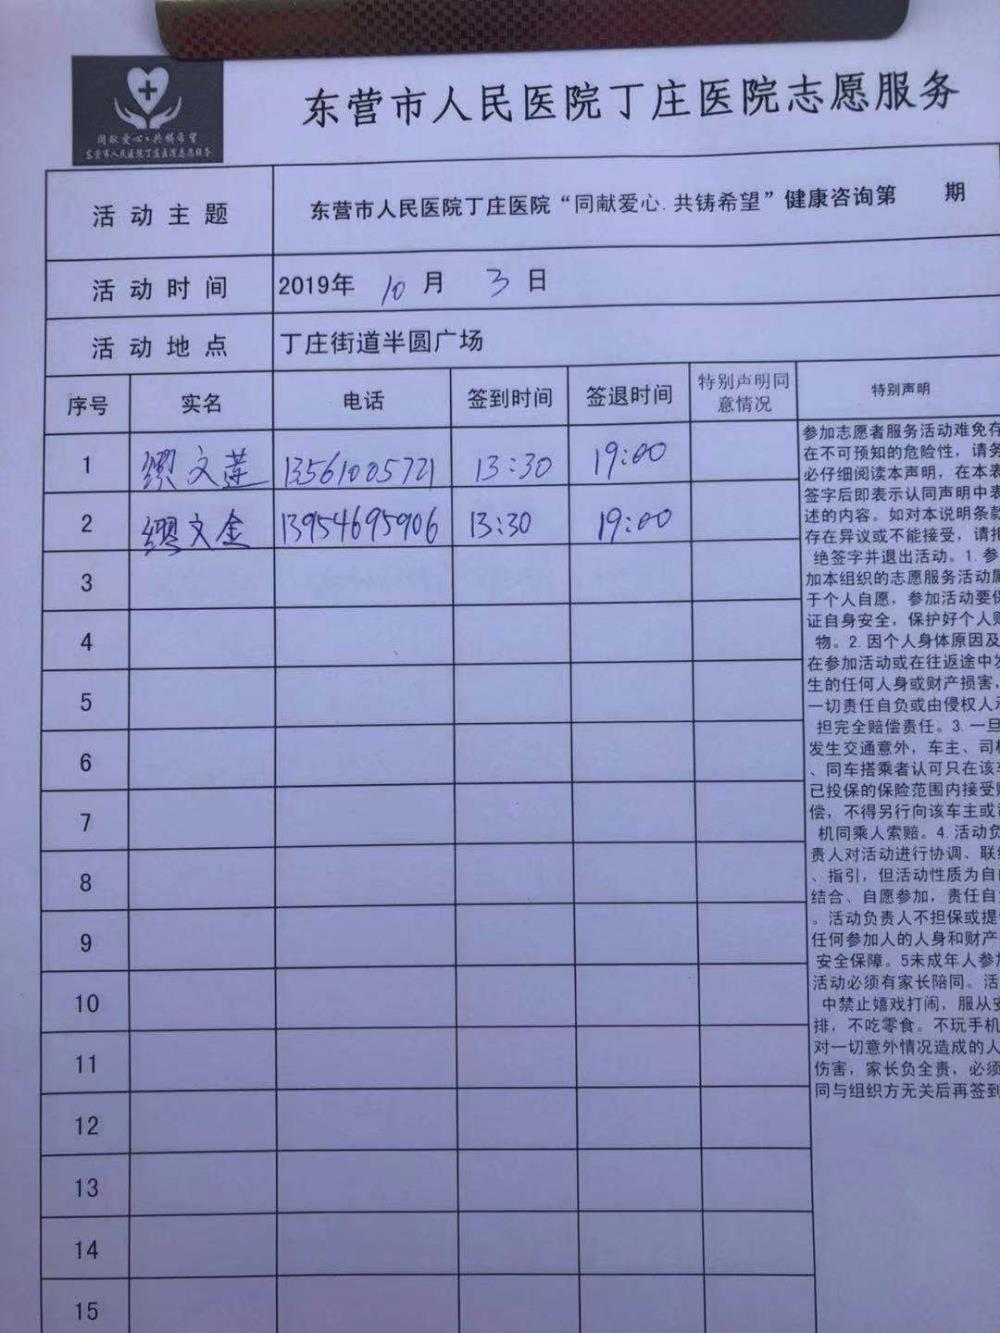 同献爱心·共铸希望
东营市人民医院丁庄医院志愿服务
东营市人民医院丁庄医院志愿服务
活动主题 东营市人民医院丁庄医院“同献爱心.共铸希望”健康咨询第 期
活动时间 2019年 10 月 3 日
活动地点 丁庄街道半圆广场
序号 实名 电话 签到时间 签退时间 特别声明同意情况 特别声明
1 缪文莲 13561005721 13:30 19:00
2 缪文金 13954695906 13:30 19:00
3
4
5
6
7
8
9
10
11
12
13
14
15
参加志愿者服务活动难免存
在不可预知的危险性，请务
必仔细阅读本声明，在本表
签字后即表示认同声明中表
述的内容。如对本说明条款
存在异议或不能接受，请拒
绝签字并退出活动。1.参
加本组织的志愿服务活动属
于个人自愿，参加活动要保
证自身安全，保护好个人财
物。2.因个人身体原因及
在参加活动或在往返途中发
生的任何人身或财产损害，
一切责任自负或由侵权人承
担完全赔偿责任。3.一旦
发生交通意外，车主、司机
、同车搭乘者认可只在该车
已投保的保险范围内接受赔
偿，不得另行向该车主或司
机同乘人索赔。4.活动负
责人对活动进行协调、联络
、指引，但活动性质为自由
结合、自愿参加，责任自负
。活动负责人不担保或提供
任何参加人的人身和财产
安全保障。5未成年人参加
活动必须有家长陪同。活
中禁止嬉戏打闹，服从安
排，不吃零食。不玩手机
对一切意外情况造成的人
伤害，家长负全责，必须
同与组织方无关后再签到